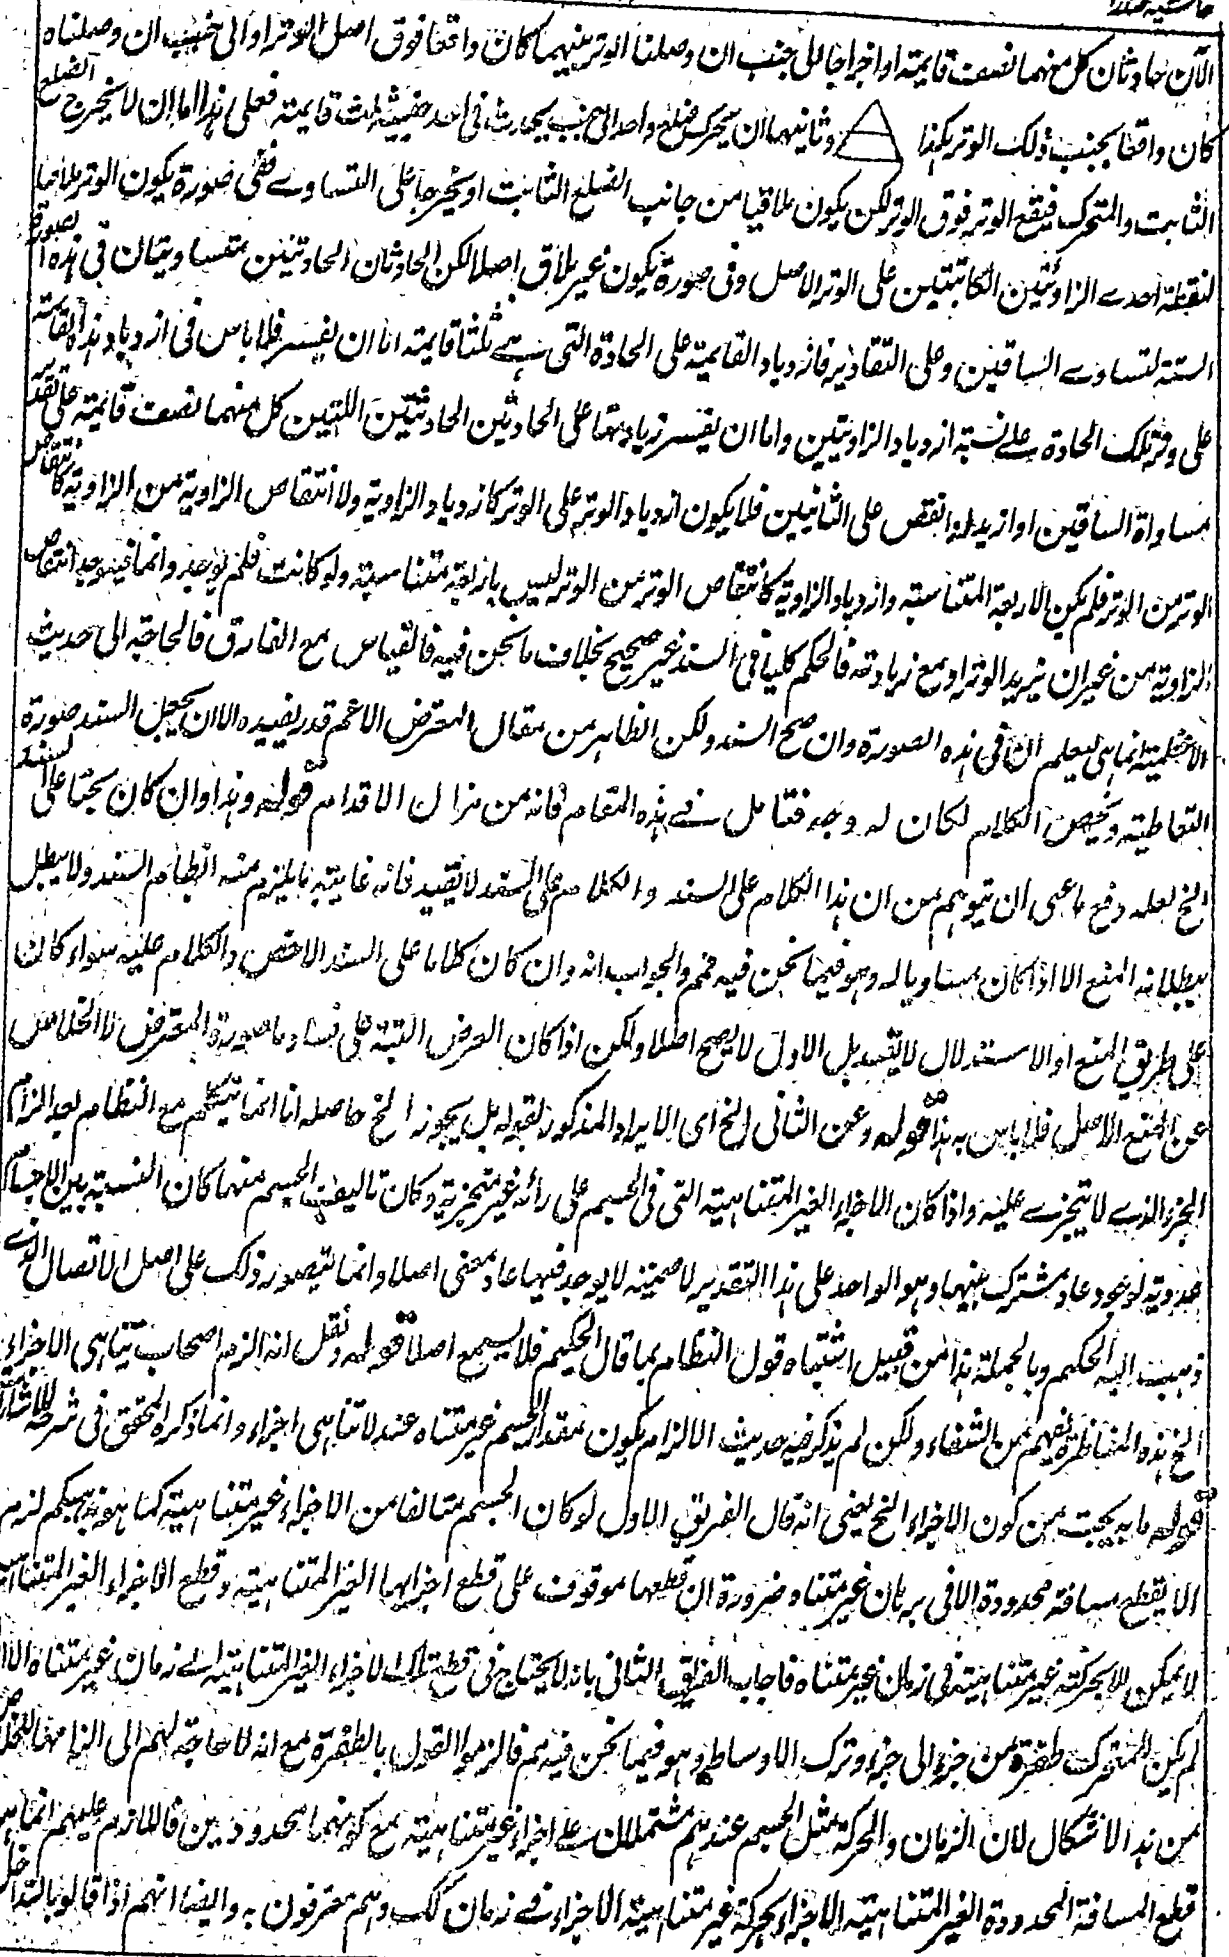 حاشیہ صدرا
الآن حادثان كل منهما نصف قائمة او اخراجا الى جنب ان وصلنا الوتر بينهما كان واقعا فوق اصل الوتر او الى جنب ان وصلناه
كان واقعا بجنب ذلك الوتر هكذا وثانيهما ان يتحرك ضلع واحد الى جنب يحدث في احد جنبيه ثلث قائمة فعلى هذا اما ان لا يخرج الضلع
الثابت والمتحرك فيقع الوتر فوق الوتر لكن يكون ملاقيا من جانب الضلع الثابت او يخرجا على التساوے ففي صورة يكون الوتر ملاقيا
لنقطة احدے الزاوئتين الكائنتين على الوتر الاصل وفي صورة يكون غير ملاق اصلا لكن الحادثان الحادثتين متساويتان في هذه الصورة
الستة لتساوے الساقين وعلى التقادير فازدياد القائمة على الحادة التي هے ثلثا قائمة اما ان يفسر فلا باس في ازدياد هذه القائمة
على وفق تلك الحادة علے نسبة ازدياد الزاويتين واما ان يفسر زيادتها على الحادثين الحادثتين اللتين كل منهما نصف قائمة على تقدير
مساواة الساقين او ازيد او انقص على الثانيين فلا يكون ازدياد الوتر على الوتر كازدياد الزاوية ولا انتقاص الزاوية من الزاوية كانتقاص
الوتر من الوتر فلم يكن الاربعة المتناسبة وازدياد الزاوية كانتقاص الوتر من الوتر ليس باربعة متناسبة ولو كانت فلم يوجد وانما فيوجد انتقاص
الزاوية من غير ان يزيد الوتر او مع زيادته فالحكم كليا في السند غير صحيح بخلاف ما نحن فيه فالقياس مع الفارق فالحاجة الى حديث
الاعظمية انما هي ليعلم ان في هذه الصورة وان صح السند ولكن الظاهر من مقال المعترض الاعم قدر يفيده الا ان يجعل السند صورة
التقاطية ويخص الكلام لكان له وجه فتامل فے هذه المقام فانه من مزال الاقدام قوله وهذا وان كان بحثا على السند
الخ لعله دفع ما عسى ان يتوهم من ان هذا الكلام على السند والكلام على السند لا يفيد فانه غايته ما يلزم منه ابطال السند ولا يبطل
ببطلانه المنع الا اذا كان مساويا له وهو فيما نحن فيه مم والجواب انه وان كان كلاما على السند الاخص والكلام عليه سواء كان
على طريق المنع او الاستدلال لا يفيد بل الاول لا يصح اصلا ولكن اذا كان الغرض التنبيه على فساد ما صوره المعترض لا الخلاص
عن المنع الاصل فلا باس به هذا قوله وعن الثاني الخ اى الايراد المذكور بقوله بل يجوز الخ حاصله انا انما نتكلم مع النظام بعد الزام
الجزء الذے لا يتجزے عليه واذا كان الاجزاء الغير المتناهية التي في الجسم على رأيه غير متجزية وكان تاليف الجسم منها كان النسبة بين الاجسام
عددية لوجود عاد مشترك بينها وهو الواحد على هذا التقدير لا صمية لا يوجد فيها عاد معنى اصلا وانما يتصور ذلك على اصل الاتصال الذے
ذهبت اليه الحكيم وبالجملة هذا من قبيل اشتباه قول النظام بما قال الحكيم فلا يسمع اصلا قوله ونقل انه الزم اصحاب تناهي الاجزاء
الخ هذه المناظرة يفهم من الشفاء ولكن لم يذكر فيه حديث الالزام بكون مقدار الجسم غير متناه عند لا تناهي اجزاء وانما ذكره المحقق في شرحه للاشارات
قوله ما به يجيب من كون الاجزاء الخ يعني انه قال الفريق الاول لو كان الجسم متالفا من الاجزاء غير متناهية كما هو مذهبكم لزم
الا يقطع مسافة محدودة الا في زمان غير متناه ضرورة ان قطعها موقوف على قطع اجزائها الغير المتناهية وقطع الاجزاء الغير المتناهية
لا يمكن الا بحركة غير متناهية في زمان غير متناه فاجاب الفريق الثاني بانه لا يحتاج في قطع تلك الاجزاء الغير المتناهية الے زمان غير متناه الا اذا
لم يكن للمتحرك طفرة من جزء الى جزء وترك الاوساط وهو فيما نحن فيه مم فالزموا القول بالطفرة مع انه لا حاجة لهم الى التزامها للخلاص
من هذا الاشكال لان الزمان والحركة مثل الجسم عندهم مشتملان علے اجزاء غير متناهية مع كونهما محدودين فاللازم عليهم انما هو
قطع المسافة المحدودة الغير المتناهية الاجزاء بحركة غير متناهية الاجزاء فے زمان كك وهم معترفون به وايضا انهم اذا قالوا بالتداخل